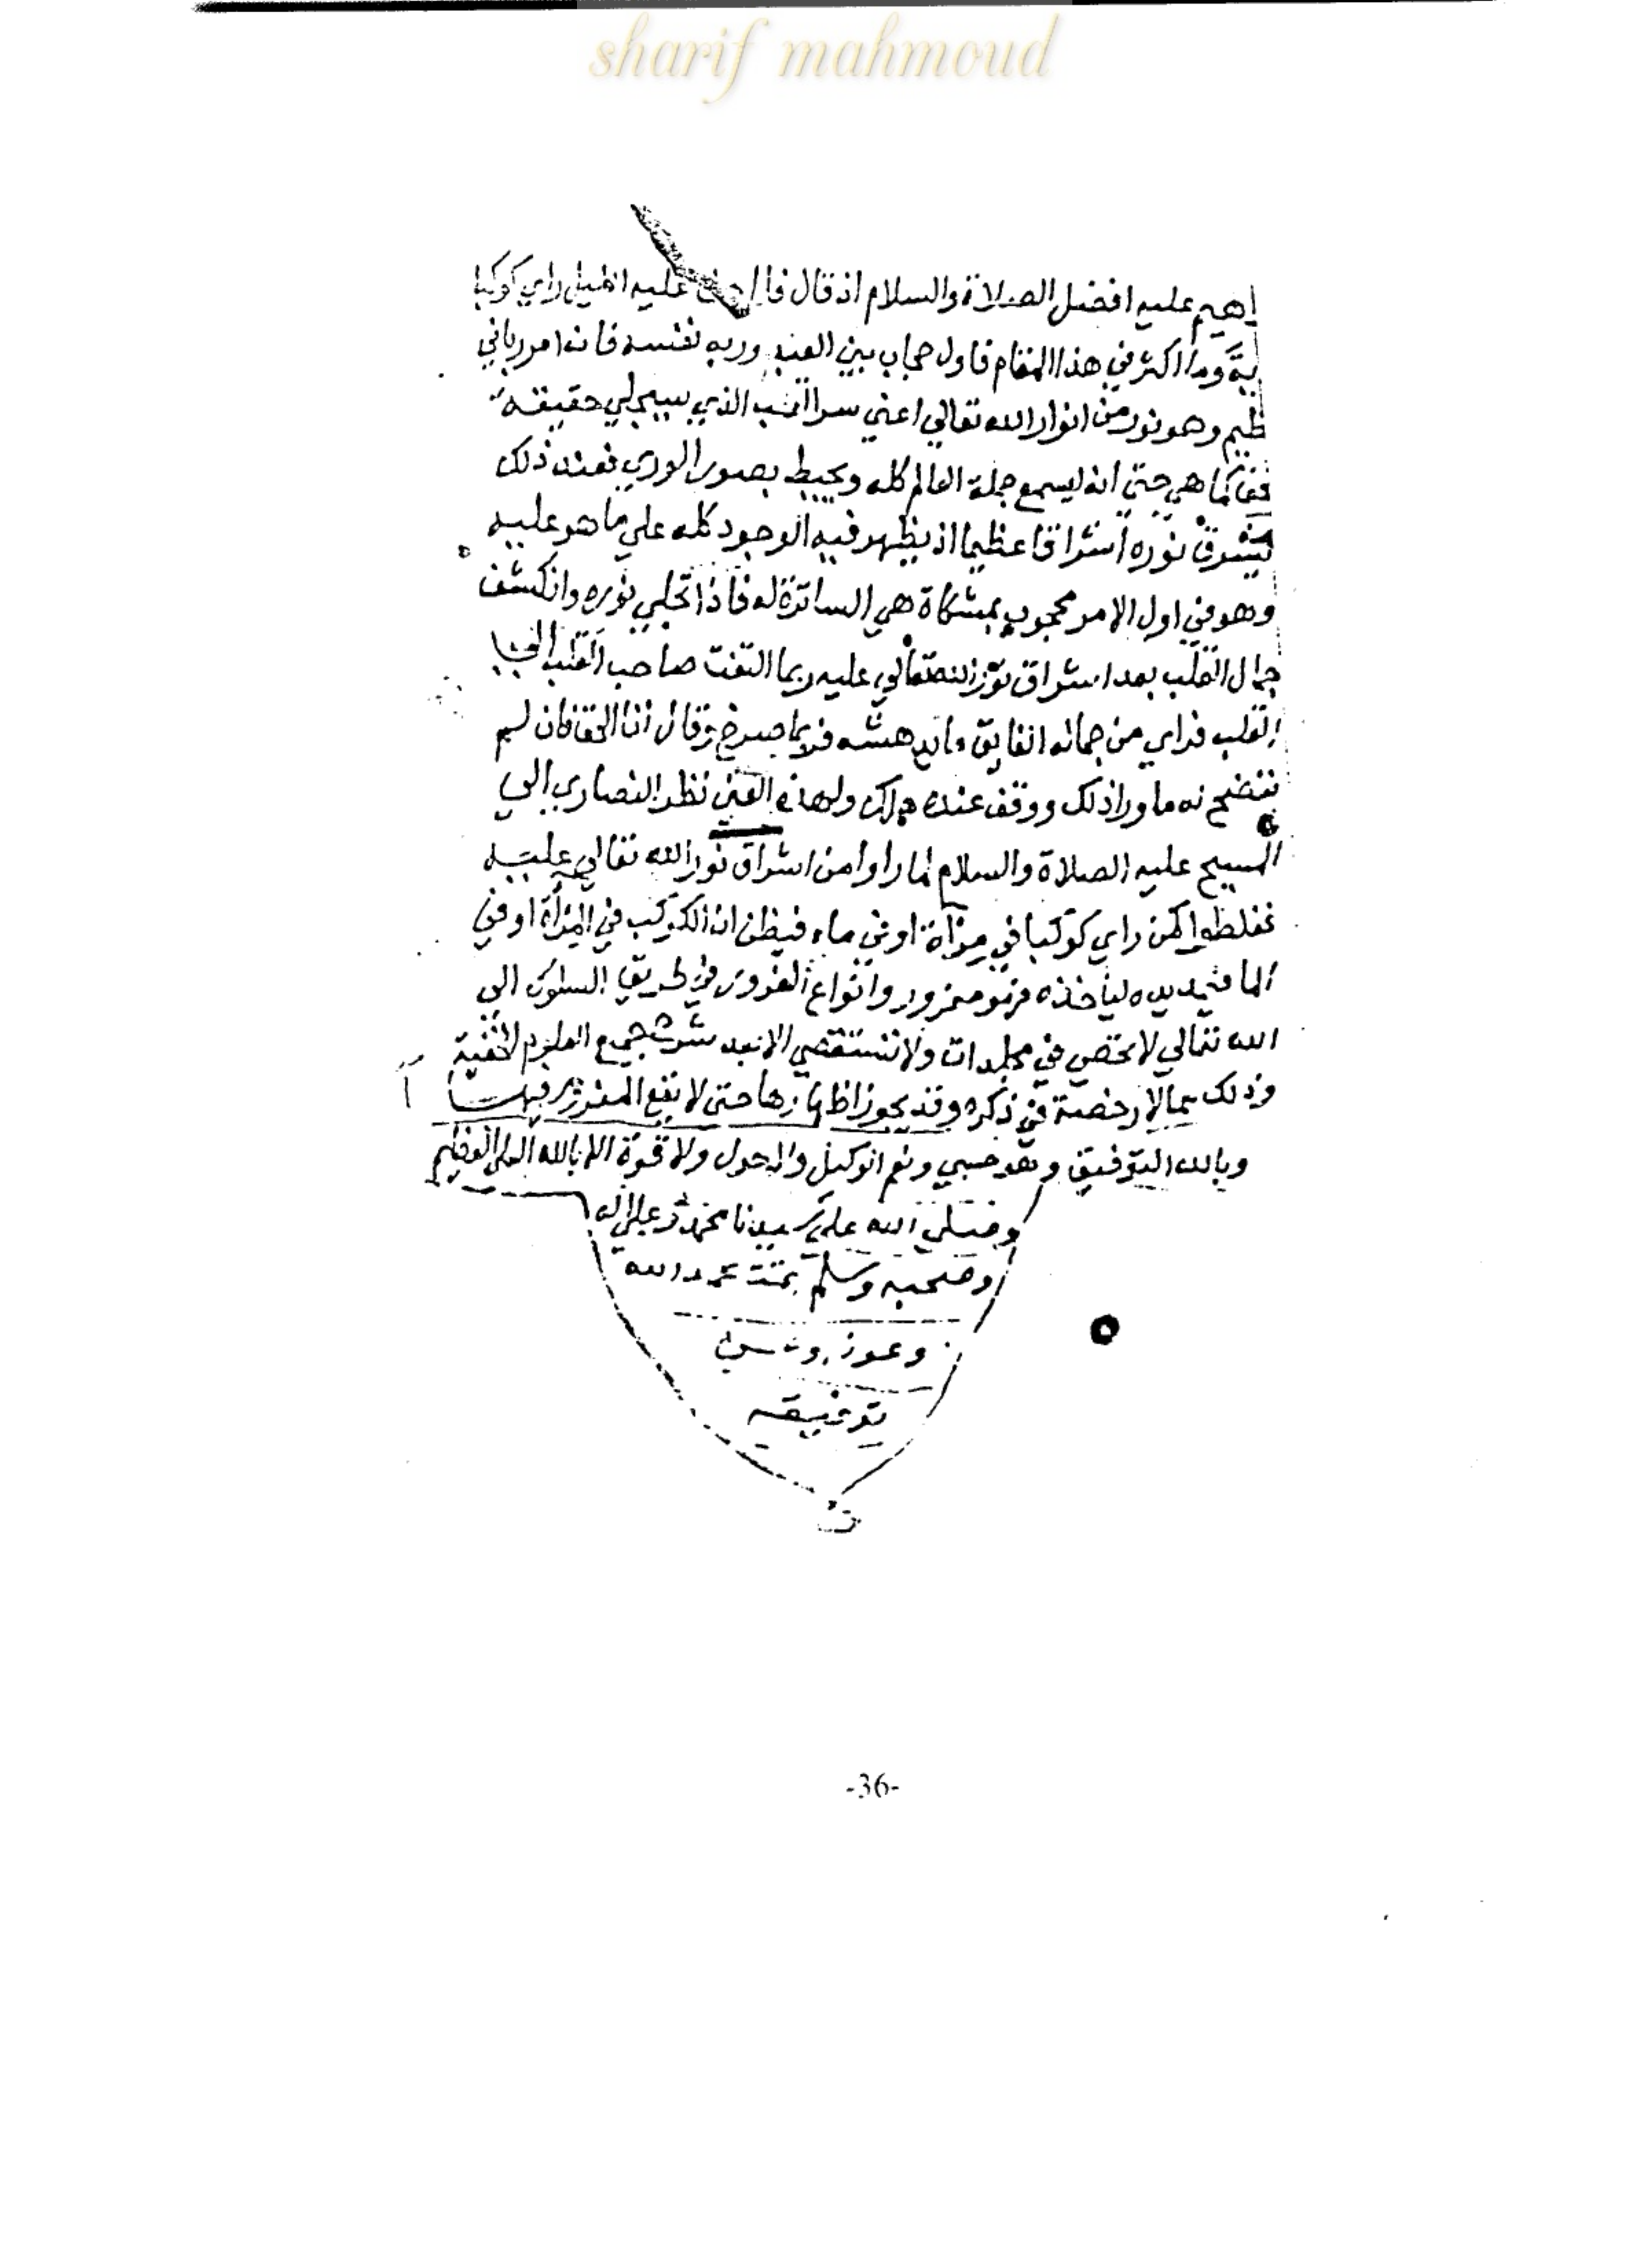 sharif mahmoud
اهيم عليه افضل الصلاة والسلام اذ قال فلما جن عليه الليل راي كوكبا
وما اكثر في هذا المقام فاول حجاب بين العبد وربه نفسه فانه امر رباني
ظيم وهو نور من انوار الله تعالي اعني سر القلب الذي سيتجلي حقيقة
كما هي حتي انه ليسع جملة العالم كله ويحيط بصور الوري فعند ذلك
يشرق نوره اشراقا عظيما اذ يظهر فيه الوجود كله علي ما هو عليه
وهو في اول الامر محجوب بمشكاة هي الساترة له فاذا تجلي نوره وانكشف
جمال القلب بعد اشراق نور الله تعالي عليه ربما التفت صاحب القلب الي
القلب فراي من جماله الفايق ما يدهشه فربما صرخ وقال انا الحق فان لم
يتضح له ما ورا ذلك ووقف عنده هلك ولهذه العين نظر النصاري الي
المسيح عليه الصلاة والسلام لما راوا من اشراق نور الله تعالي عليه
فغلطوا كمن راي كوكبا في مرآة او في ماء فيظن ان الكوكب في المرآة او في
الما فيمد يده لياخذه فهو مغرور وانواع الغرور في طريق السلوك الي
الله تعالي لا تحصي في مجلدات ولا تستقصي الا بعد شرح جميع العلوم الخفية
وذلك مما لا رخصة في ذكره وقد يجوز اظهارها حتي لا يقع المغرور فيها
وبالله التوفيق وهو حسبي ونعم الوكيل ولا حول ولا قوة الا بالله العلي العظيم
وصلي الله علي سيدنا محمد وعلي اله
وصحبه وسلم تمت بحمد الله
وعونه وحسن
توفيقه
-36-